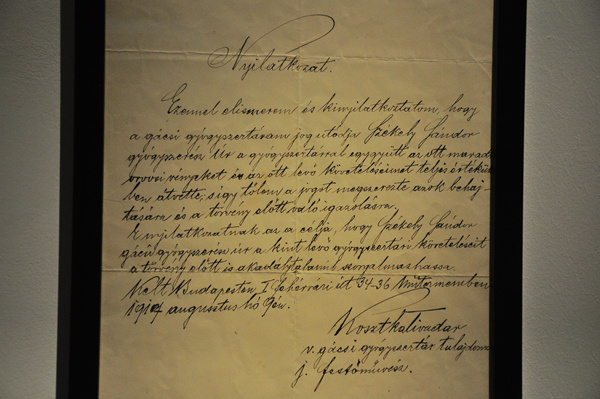 Nyilatkozat.
Ezennel elismerem és kinyilatkoztatom, hogy
a gácsi gyógyszertáram jogutódja Székely Sándor
gyógyszerész Úr a gyógyszertárral egygyütt az ott maradt
orvosi vényeket és az ott levő követeléseimet teljes értékük-
ben átvette, s így tőlem a jogot megszerezte azok behaj-
tására és a törvény előtt való igazolásra.
E nyilatkozatnak az a célja, hogy Székely Sándor
gácsi gyógyszerész úr a kint levő gyógyszertári követeléseit
a törvény előtt is akadálytalanul szorgalmazhassa.
Kelt Budapesten I. Fehérvári út 34-36 Műtermemben
augusztus hó 9én.
Kosztkativadar
v. gácsi gyógyszertár tulajdonos
j. festőművész.